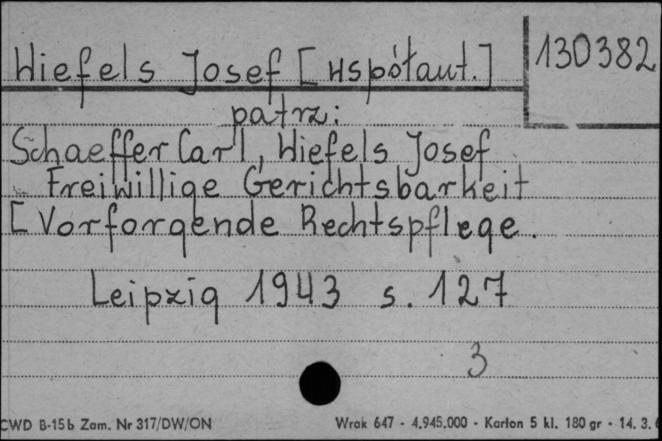 Wiefels Josef [współaut.]
130382
patrz:
Schaeffer Carl, Wiefels Josef
Freiwillige Gerichtsbarkeit
[Vorforgende Rechtspflege.
Leipzig 1943 s. 127
3
CWD B-15b Zam. Nr 317/DW/ON
Wrak 647 - 4.945.000 - Karton 5 kl. 180 gr - 14. 3.